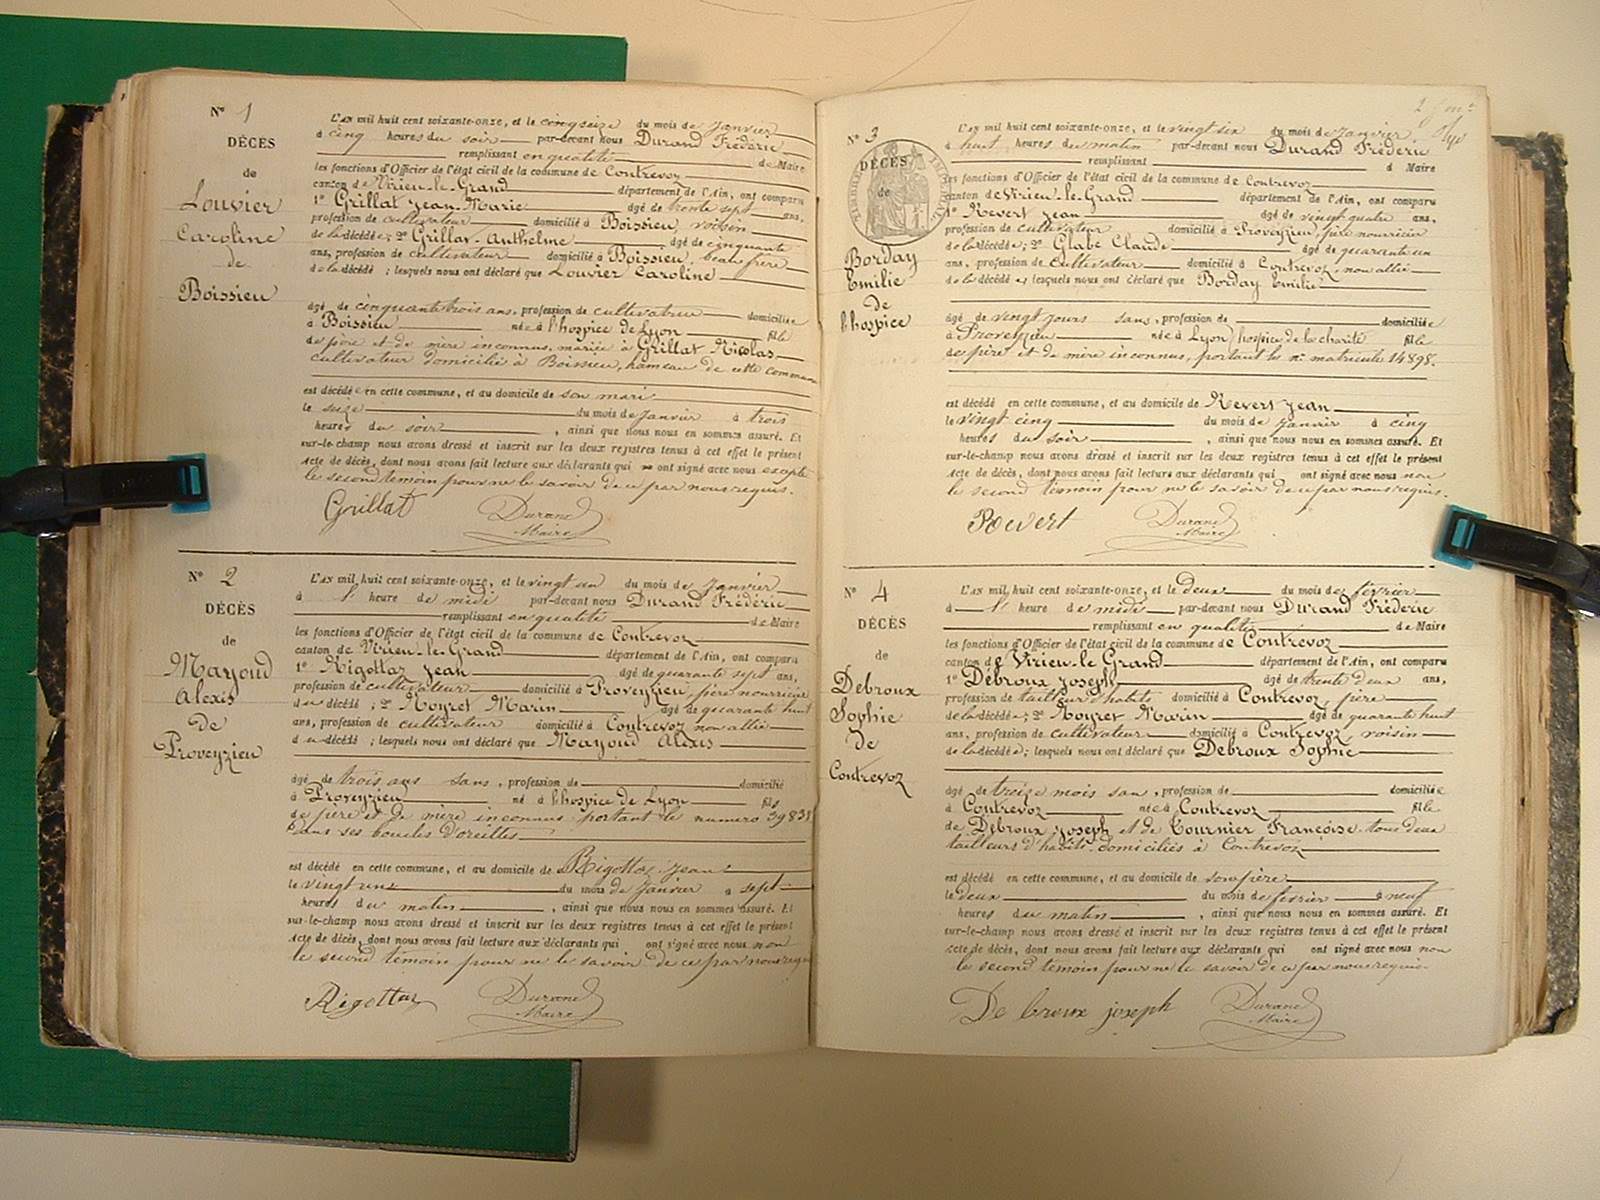 N° 1
DÉCÈS
de
Louvier
Caroline
de
Boissieu
L'AN mil huit cent soixante-onze, et le cinq seize du mois de Janvier
à cinq heures du soir par-devant nous Durand Fréderic
remplissant en qualité de Maire
les fonctions d'Officier de l'état civil de la commune de Contrevoz
canton de Virieu-le-Grand département de l'Ain, ont comparu
1° Grillat Jean-Marie âgé de trente sept ans,
profession de cultivateur domicilié à Boissieu, voisin
de la décédée; 2° Grillat-Anthelme âgé de cinquante
ans, profession de cultivateur domicilié à Boissieu, beau frère
de la décédé ; lesquels nous ont déclaré que Louvier Caroline
âgé de cinquante trois ans, profession de cultivateur domiciliée
à Boissieu née à l'hospice de Lyon fille
de père et de mère inconnus, mariée à Grillat Nicolas
cultivateur domicilié à Boissieu, hameau de cette commune
est décédée en cette commune, et au domicile de son mari
le seize du mois de Janvier à trois
heures du soir , ainsi que nous nous en sommes assuré. Et
sur-le-champ nous avons dressé et inscrit sur les deux registres tenus à cet effet le présent
acte de décès, dont nous avons fait lecture aux déclarants qui ont signé avec nous excepté
le second témoin pour ne le savoir de ce par nous requis.
Grillat Durand
Maire
N° 2
DÉCÈS
de
Mayoud
Alexis
de
Proveyzieu
L'AN mil huit cent soixante-onze, et le vingt un du mois de Janvier
à l' heure de midi par-devant nous Durand Fréderic
remplissant en qualité de Maire
les fonctions d'Officier de l'état civil de la commune de Contrevoz
canton de Virieu-le-Grand département de l'Ain, ont comparu
1° Rigottaz Jean âgé de quarante sept ans,
profession de cultivateur domicilié à Proveyzieu, père nourricier
du décédé ; 2° Moyret Marin âgé de quarante huit
ans, profession de cultivateur domicilié à Contrevoz non allié
du décédé ; lesquels nous ont déclaré que Mayoud Alexis
âgé de trois ans sans, profession de domicilié
à Proveyzieu né à l'hospice de Lyon fils
de père et de mère inconnus portant le numero 39831
dans ses boucles d'oreilles
est décédé en cette commune, et au domicile de Rigottaz Jean
le vingt un du mois de Janvier à sept
heures du matin , ainsi que nous nous en sommes assuré. Et
sur-le-champ nous avons dressé et inscrit sur les deux registres tenus à cet effet le présent
acte de décès, dont nous avons fait lecture aux déclarants qui ont signé avec nous non
le second témoin pour ne le savoir de ce par nous requis
Rigottaz Durand
Maire
N° 3
DÉCÈS
de
Borday
Emilie
de
l'hospice
L'AN mil huit cent soixante-onze, et le vingt six du mois de Janvier
à huit heures du matin par-devant nous Durand Fréderic
remplissant d Maire
les fonctions d'Officier de l'état civil de la commune de Contrevoz
canton de Virieu-le-Grand département de l'Ain, ont comparu
1° Revert Jean âgé de vingt quatre ans,
profession de cultivateur domicilié à Proveyzieu, père nourricier
de la décédée; 2° Glabe Claude âgé de quarante un
ans, profession de cultivateur domicilié à Contrevoz, non allié
de la décédée; lesquels nous ont déclaré que Borday Emilie
âgé de vingt jours sans, profession de domiciliée
à Proveyzieu née à Lyon hospice de la charité fille
de père et de mère inconnus, portant les n° matricule 14898.
est décédé en cette commune, et au domicile de Revert Jean
le vingt cinq du mois de Janvier à cinq
heures du soir , ainsi que nous nous en sommes assuré. Et
sur-le-champ nous avons dressé et inscrit sur les deux registres tenus à cet effet le présent
acte de décès, dont nous avons fait lecture aux déclarants qui ont signé avec nous non
le second témoin pour ne le savoir de ce par nous requis.
Revert Durand
Maire
N° 4
DÉCÈS
de
Debroux
Sophie
de
Contrevoz
L'AN mil huit cent soixante-onze, et le deux du mois de février
à l' heure de midi par-devant nous Durand Fréderic
remplissant en qualité de Maire
les fonctions d'Officier de l'état civil de la commune de Contrevoz
canton de Virieu-le-Grand département de l'Ain, ont comparu
1° Debroux Joseph âgé de trente deux ans,
profession de tailleur d'habits domicilié à Contrevoz, père
de la décédée; 2° Moyret Marin âgé de quarante huit
ans, profession de cultivateur domicilié à Contrevoz, voisin
de la décédée; lesquels nous ont déclaré que Debroux Sophie
âgé de treize mois san, profession de domiciliée
à Contrevoz née à Contrevoz fille
de Debroux Joseph et de Tournier Françoise, tous deux
tailleurs d'habits domiciliés à Contrevoz
est décédé en cette commune, et au domicile de son père
le deux du mois de février à neuf
heures du matin , ainsi que nous nous en sommes assuré. Et
sur-le-champ nous avons dressé et inscrit sur les deux registres tenus à cet effet le présent
acte de décès, dont nous avons fait lecture aux déclarants qui ont signé avec nous non
le second témoin pour ne le savoir de ce par nous requis
De broux joseph Durand
Maire